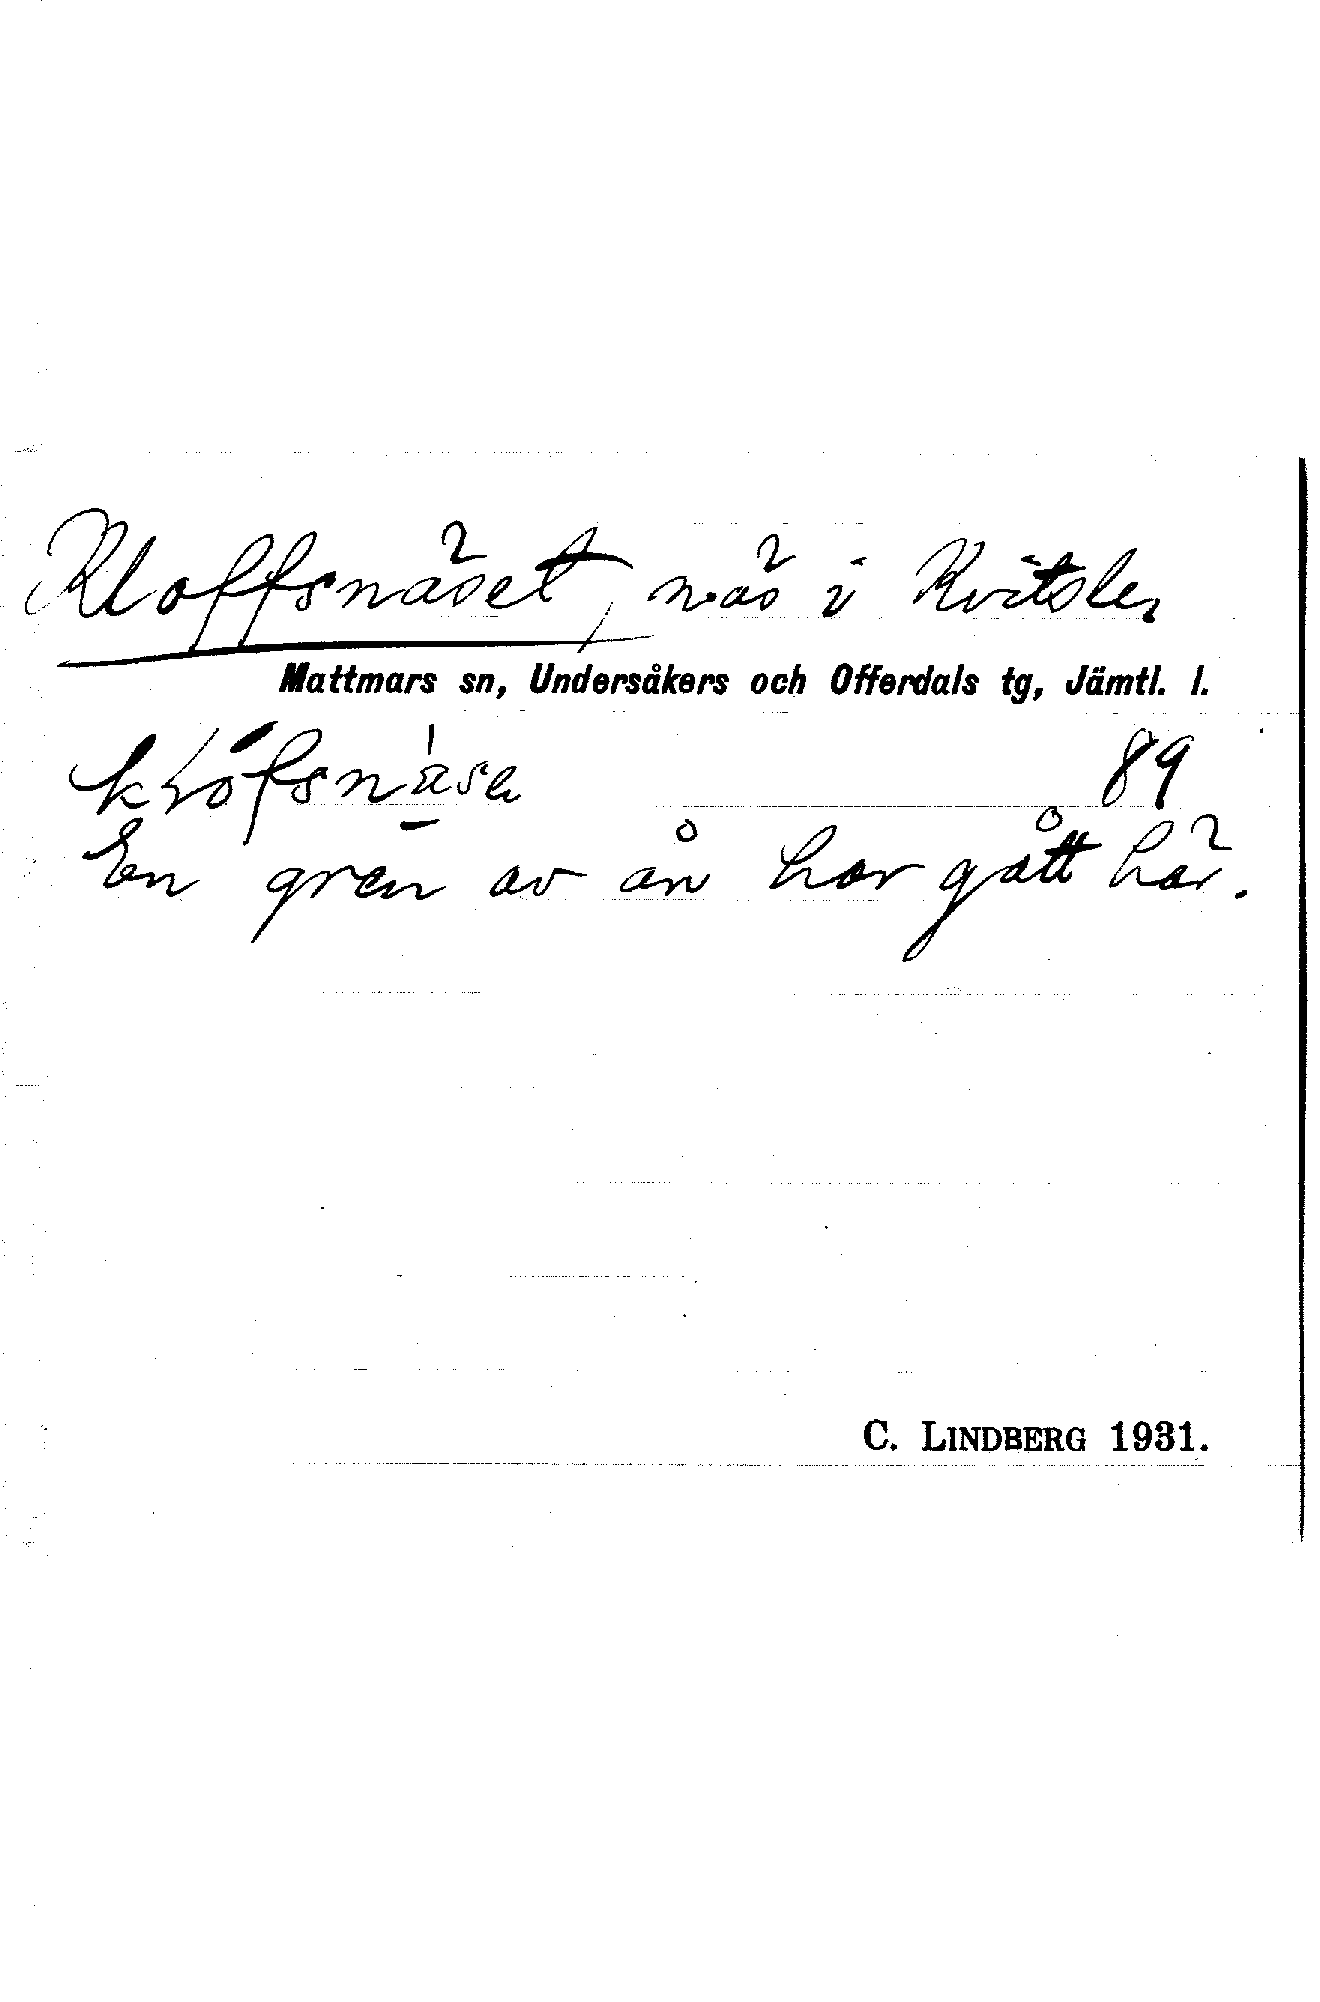 Kloffsnäset, näs i Kvitsler
Mattmars sn, Undersåkers och Offerdals tg, Jämtl. l.
89
En gren av ån har gått här.
C. LINDBERG 1931.